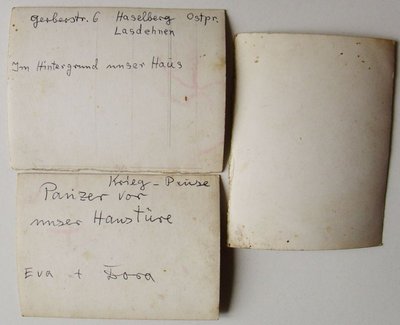 Gerberstr. 6 Haselberg Ostpr.
Lasdehnen
Im Hintergrund unser Haus
Krieg - Pause
Panzer vor
unser Haustüre
Eva + Dora